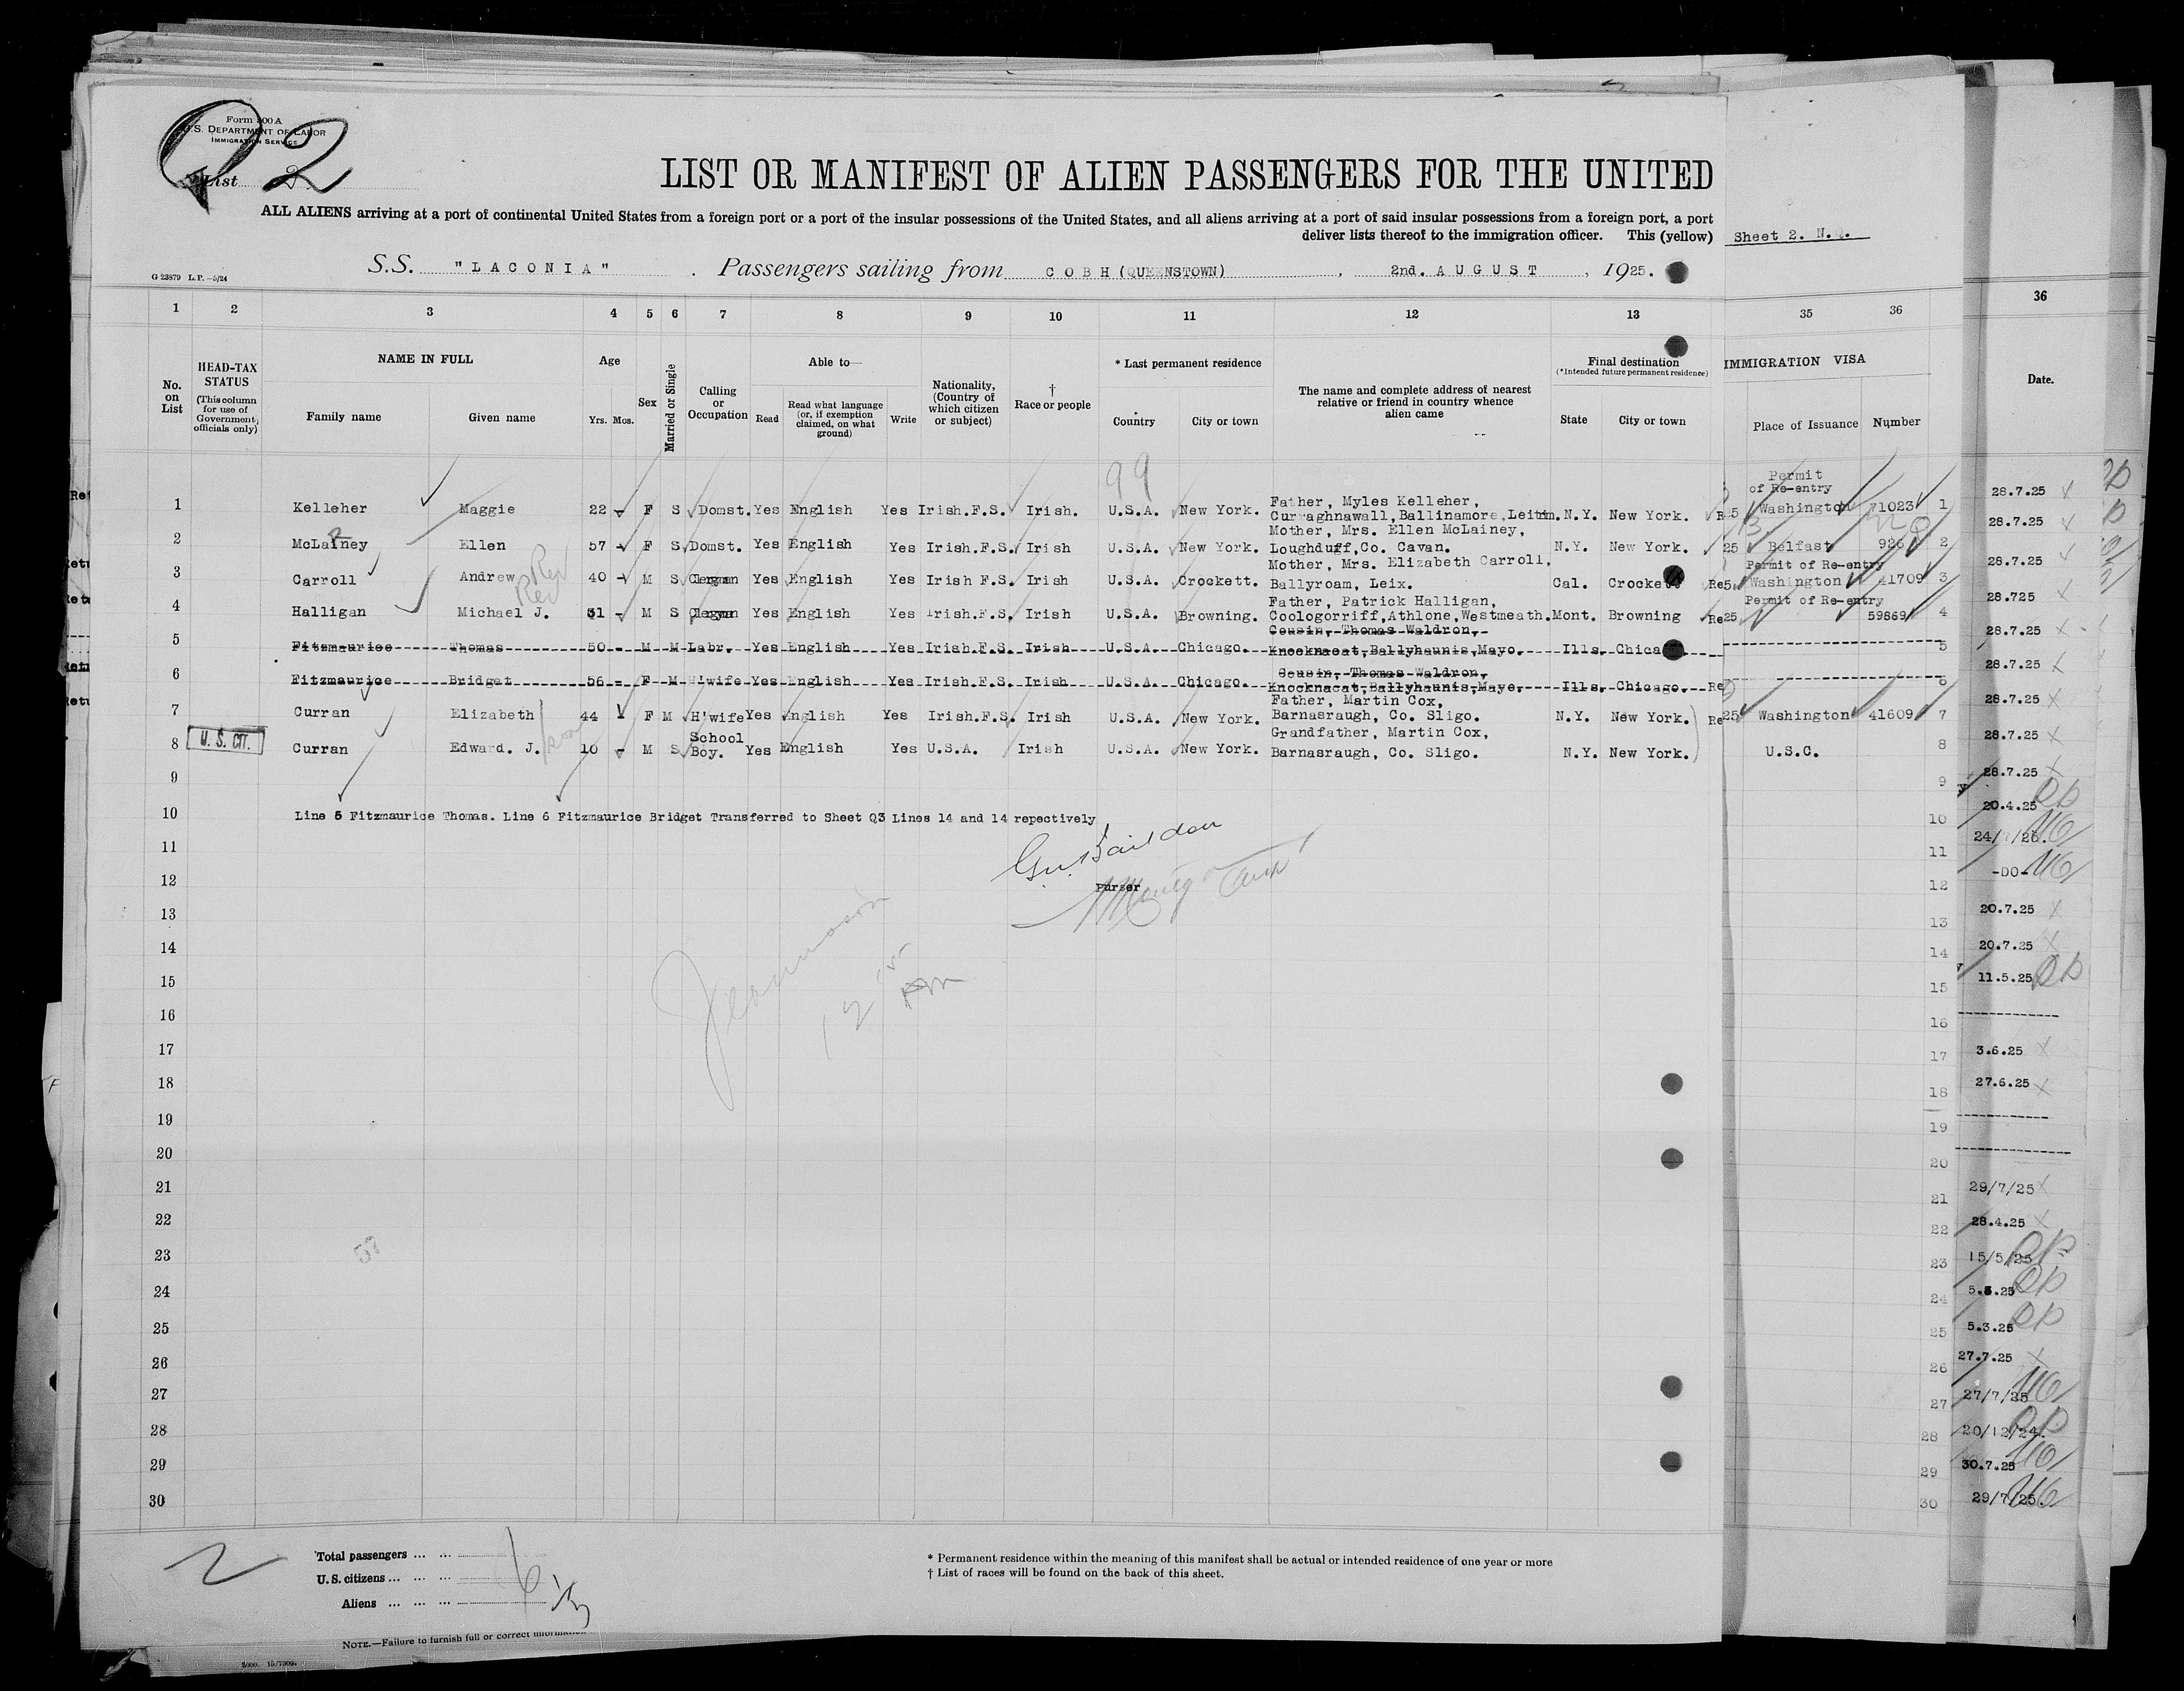 Form 500 A
U.S. DEPARTMENT OF LABOR
IMMIGRATION SERVICE
List 2.
Q 2
LIST OR MANIFEST OF ALIEN PASSENGERS FOR THE UNITED
ALL ALIENS arriving at a port of continental United States from a foreign port or a port of the insular possessions of the United States, and all aliens arriving at a port of said insular possessions from a foreign port, a port
deliver lists thereof to the immigration officer. This (yellow)
Sheet 2. N.Q.
G 23879 L.P.—5/24
S.S. "LACONIA". Passengers sailing from COBH (QUEENSTOWN), 2nd. AUGUST, 1925.
1 2 3 4 5 6 7 8 9 10 11 12 13 35 36 36
No. on List
HEAD-TAX STATUS (This column for use of Government officials only)
NAME IN FULL
Family name Given name
Age
Yrs. Mos.
Sex
Married or Single
Calling or Occupation
Able to—
Read
Read what language (or, if exemption claimed, on what ground)
Write
Nationality, (Country of which citizen or subject)
† Race or people
* Last permanent residence
Country City or town
The name and complete address of nearest relative or friend in country whence alien came
Final destination
(*Intended future permanent residence)
State City or town
IMMIGRATION VISA
Place of Issuance Number
Date.
99
Permit of Re-entry
1 Kelleher Maggie 22 - F S Domst. Yes English Yes Irish.F.S. Irish. U.S.A. New York. Father, Myles Kelleher, Curraghnawall, Ballinamore, Leitrim. N.Y. New York. Washington 71023 1
2 McLainey Ellen 57 - F S Domst. Yes English Yes Irish.F.S. Irish U.S.A. New York. Mother, Mrs. Ellen McLainey, Loughduff, Co. Cavan. N.Y. New York. Belfast 926 2
Permit of Re-entry
3 Carroll Andrew 40 - M S Clergman Yes English Yes Irish F.S. Irish U.S.A. Crockett. Mother, Mrs. Elizabeth Carroll, Ballyroam, Leix. Cal. Crockett Washington 41709 3
Permit of Re-entry
4 Halligan Michael J. 31 - M S Clergman Yes English Yes Irish.F.S. Irish U.S.A. Browning. Father, Patrick Halligan, Coologorriff, Athlone, Westmeath. Mont. Browning 59869 4
5 Fitzmaurice Thomas 50 - M M Labr. Yes English Yes Irish.F.S. Irish U.S.A. Chicago. Cousin, Thomas Waldron, Knocknacat, Ballyhaunis, Mayo. Ills. Chica 5
6 Fitzmaurice Bridget 56 - F M H'wife Yes English Yes Irish.F.S. Irish U.S.A. Chicago. Cousin, Thomas Waldron, Knocknacat, Ballyhaunis, Mayo. Ills. Chicago. 6
7 Curran Elizabeth 44 - F M H'wife Yes English Yes Irish.F.S. Irish U.S.A. New York. Father, Martin Cox, Barnasraugh, Co. Sligo. N.Y. New York. Washington 41609 7
8 U. S. CIT. Curran Edward. J. 10 - M S School Boy. Yes English Yes U.S.A. Irish U.S.A. New York. Grandfather, Martin Cox, Barnasraugh, Co. Sligo. N.Y. New York. U.S.C. 8
9 9
10 Line 5 Fitzmaurice Thomas. Line 6 Fitzmaurice Bridget Transferred to Sheet Q3 Lines 14 and 14 repectively 10
11 11
12 Purser 12
13 13
14 14
15 15
16 16
17 17
18 18
19 19
20 20
21 21
22 22
23 23
24 24
25 25
26 26
27 27
28 28
29 29
30 30
28.7.25
28.7.25
28.7.25
28.725
28.7.25
28.7.25
28.7.25
28.7.25
28.7.25
20.4.25
-DO-
20.7.25
20.7.25
11.5.25
3.6.25
27.6.25
29/7/25
28.4.25
15/5/25
5.3.25
27.7.25
27/7/25
20/12/24.
30.7.25
29/7/25.
2
Total passengers ... ...
U.S. citizens ... ... ...
Aliens ... ... ...
* Permanent residence within the meaning of this manifest shall be actual or intended residence of one year or more
† List of races will be found on the back of this sheet.
NOTE.—Failure to furnish full or correct